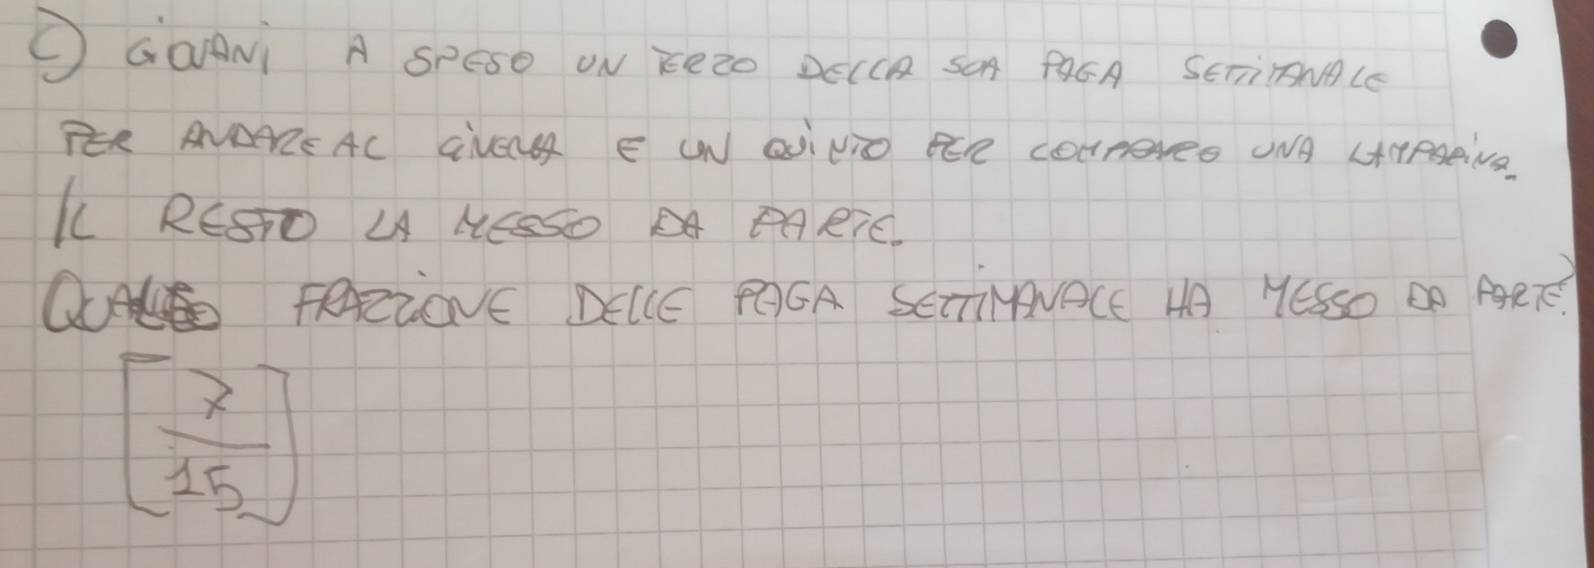 C) GIOVANNI A SPESO UN TERZO DELLA SUA PAGA SETTIMANALE
PER ANDARE AL CINEMA E UN QUINTO PER COMPRARE UNA LAMPADINA.
IL RESTO LA MESSO DA PARTE.
QUALE FRAZZIONE DELLE PAGA SETTIMANALE HA MESSO DA PARTE?
[7/15]